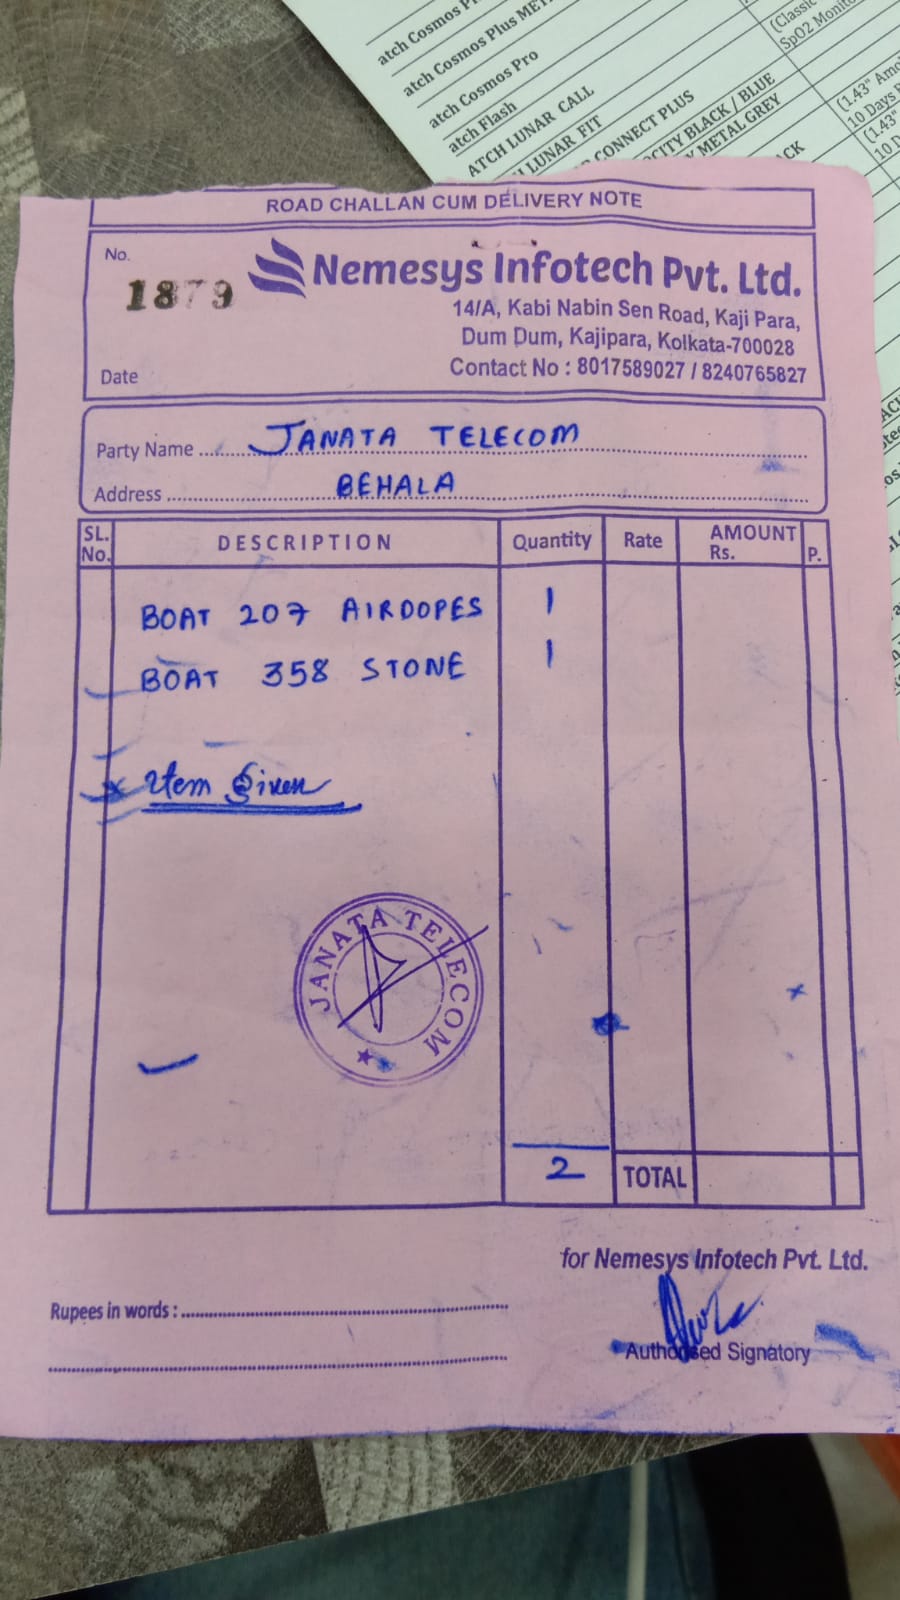 atch Cosmos Plus MET
atch Cosmos Pro
atch Flash
ATCH LUNAR CALL
LUNAR FIT
CONNECT PLUS
CITY BLACK / BLUE
METAL GREY
(Classic
SpO2 Monito
(1.43" Amo
10 Days
(1.43"
ROAD CHALLAN CUM DELIVERY NOTE
No.
1879
Nemesys Infotech Pvt. Ltd.
14/A, Kabi Nabin Sen Road, Kaji Para,
Dum Dum, Kajipara, Kolkata-700028
Contact No : 8017589027 / 8240765827
Date
Party Name JANATA TELECOM
Address BEHALA
SL. No. DESCRIPTION Quantity Rate AMOUNT Rs. P.
BOAT 207 AIRDOPES 1
BOAT 358 STONE 1
Item Given
JANATA TELECOM
2 TOTAL
for Nemesys Infotech Pvt. Ltd.
Rupees in words :
Authorised Signatory